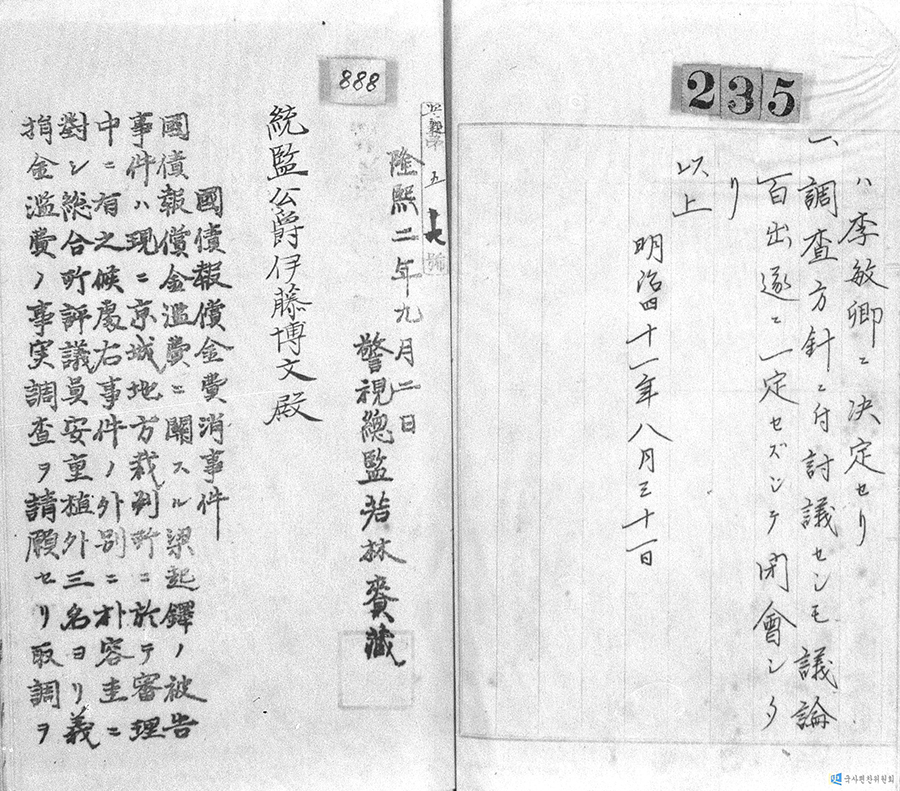 235
ハ李敏卿ニ決定セリ
一、調査方針ニ付討議センモ議論
百出遂ニ一定セズシテ閉會シタ
リ
以上
明治四十一年八月三十一日
888
隆熙二年九月二日
警視總監若林賚藏
統監公爵伊藤博文殿
國債報償金費消事件
國債報償金濫費ニ關スル梁起鐸ノ被告
事件ハ現ニ京城地方裁判所ニ於テ審理
中ニ有之候處右事件ノ外別ニ朴容圭ニ
對シ総合所評議員安重植外三名ヨリ義
捐金濫費ノ事実調査ヲ請願セリ取調ヲ
국사편찬위원회